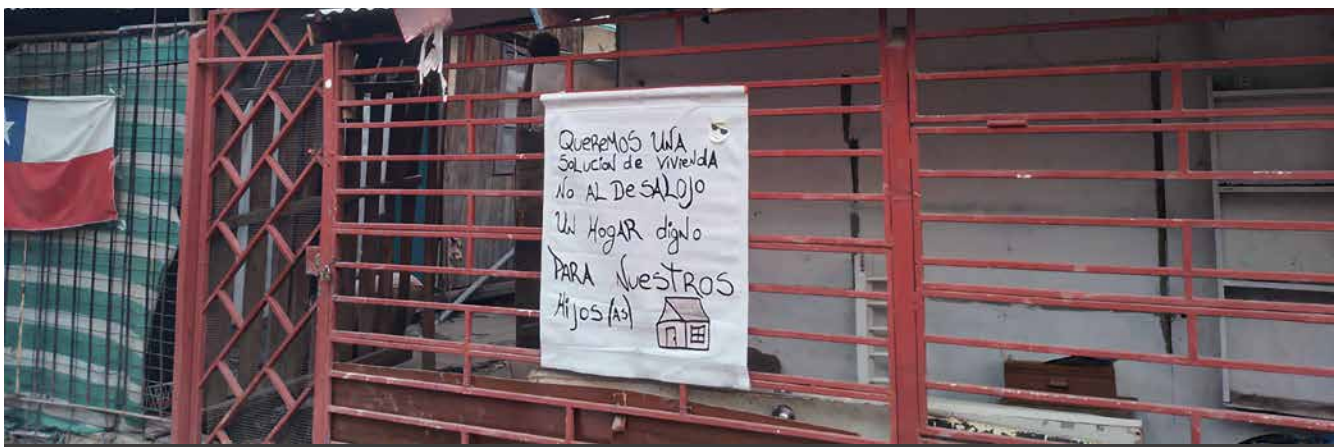 QUEREMOS UNA
SOLUCION de VIVIENDA
NO AL DESALOJO
UN HOGAR digNo
PARA NUESTROS
Hijos (AS)